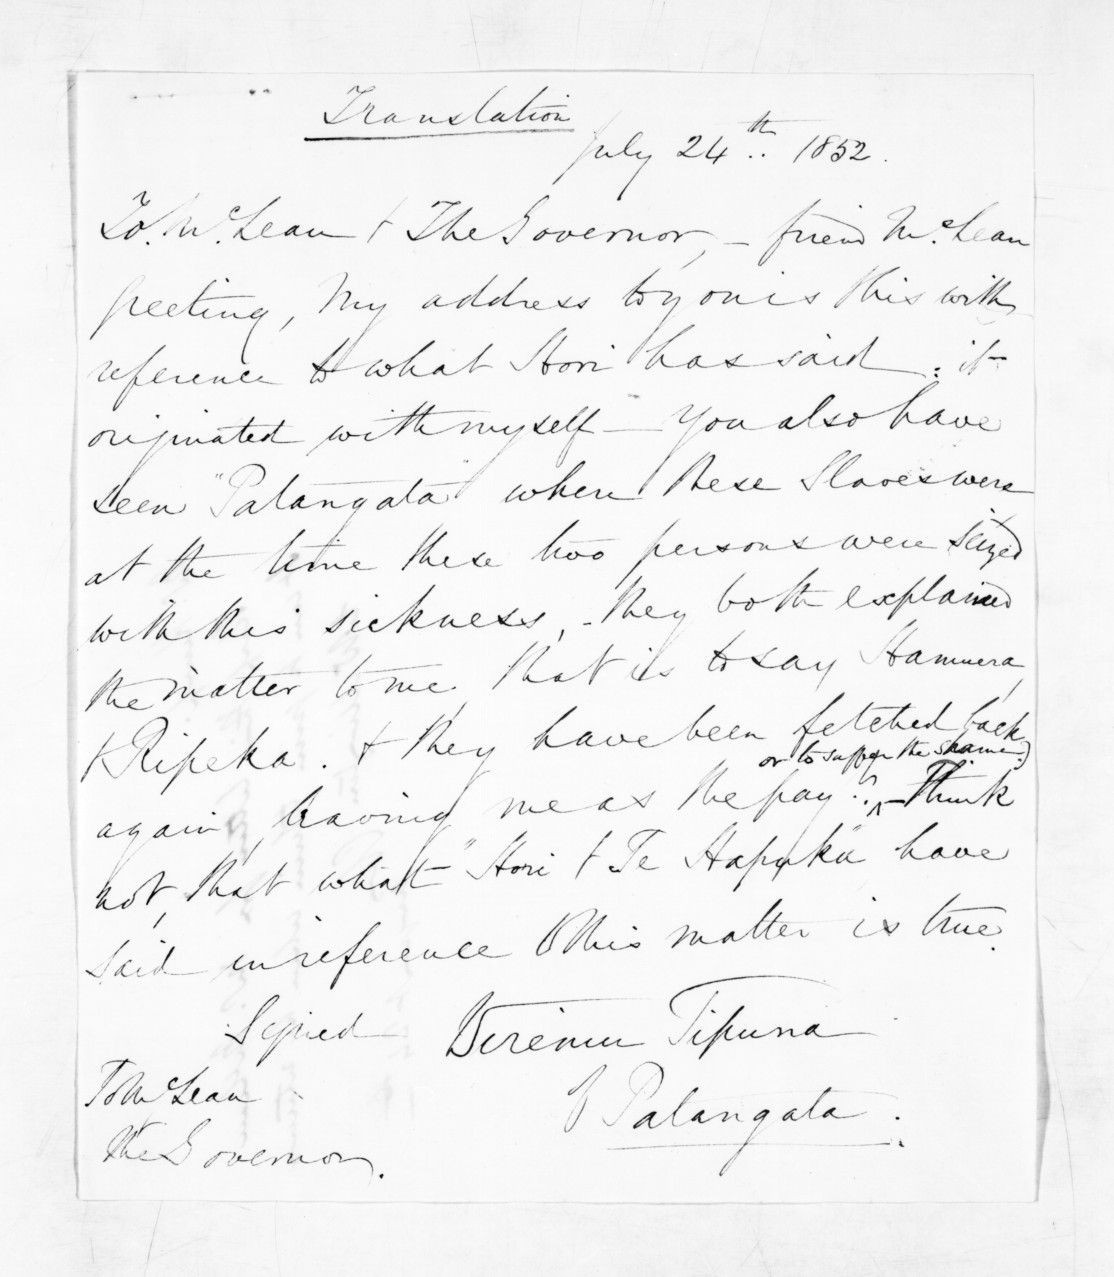 Translation
July 24th.. 1852.
To. Mc.Lean & The Governor, - friend Mc.Lean
greeting, My address to you is this with
reference to what Hori has said. it
originated with myself - You also have
seen "Patangata" where these Slaves were
at the time these two persons were seized
with this sickness, - they both explained
the matter to me, that is to say Hamuera,
& Ripeka. & they have been fetched back
or to suffer the shame.)
again, leaving me as the pay. - Think
not, that what "Hori & Te Hapuku" have
said in reference to this matter is true.
Signed Tipuna
of Patangata.
To McLean
& The Governor.